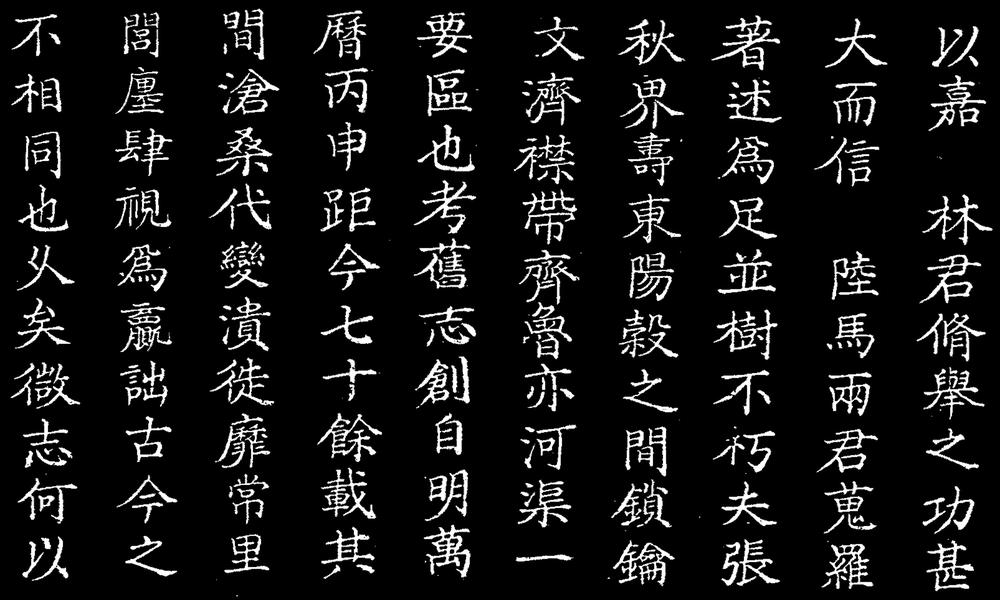 以嘉 林君脩舉之功甚
大而信 陸馬兩君蒐羅
著述爲足並樹不朽夫張
秋界壽東陽穀之間鎖鑰
文濟襟帶齊魯亦河渠一
要區也考舊志創自明萬
曆丙申距今七十餘載其
間滄桑代變潰徙靡常里
閭廛肆視爲贏詘古今之
不相同也久矣微志何以